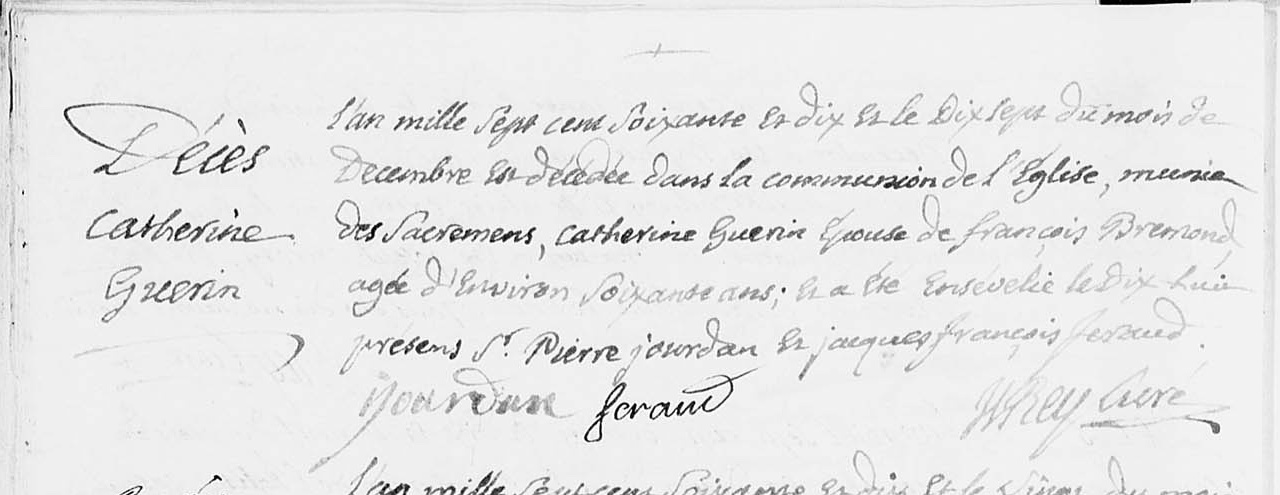 Décès
Catherine
Guerin
L'an mille sept cent soixante et dix et le Dix sept du mois de
Decembre est décédée dans la communion de l'Eglise, munie
des Sacremens, catherine Guerin Epouse de françois Bremond,
agée d'Environ soixante ans; et a été Ensévelie le Dix huit
présens Sr. Pierre jourdan et jacques françois feraud.
jourdan feraud Rey Curé
L'an mille sept cent soixante et dix et le du moi